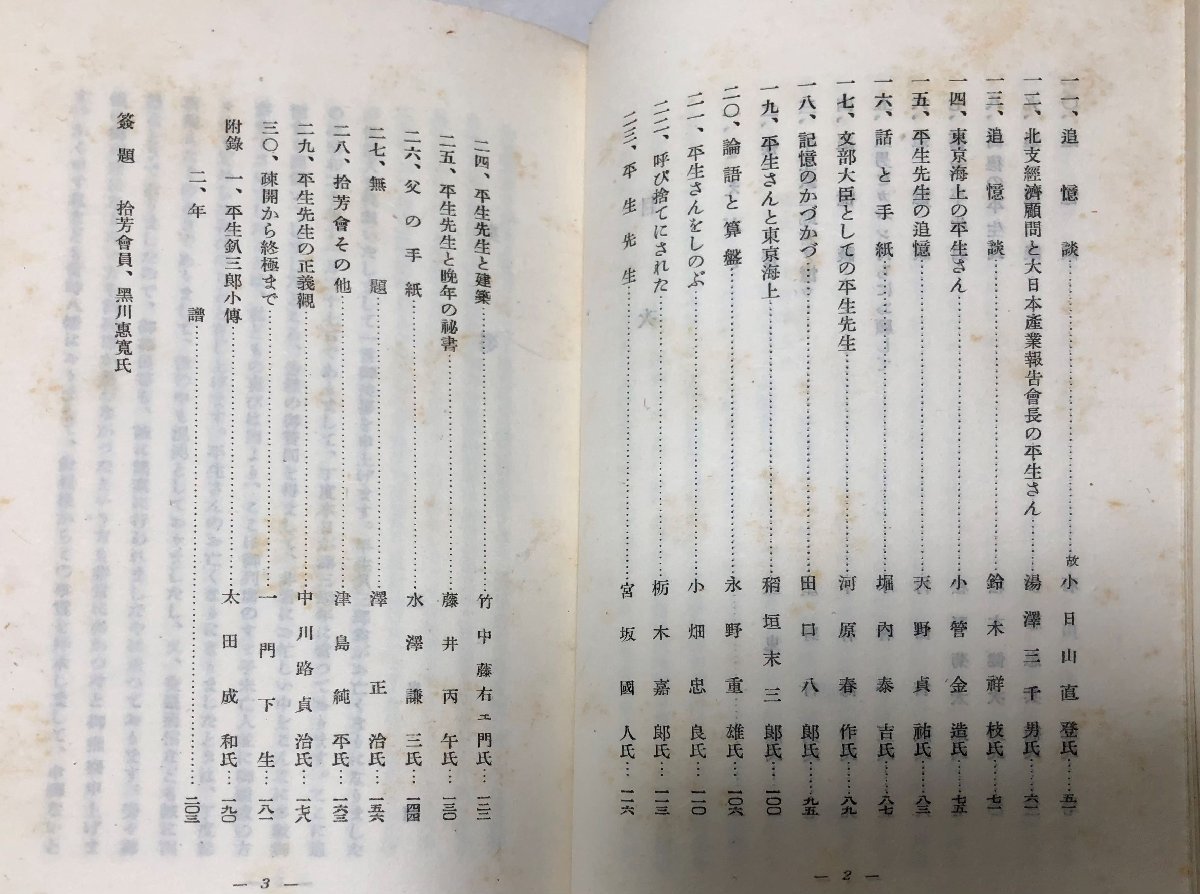 一一、追憶談……故小日山直登氏…五一
一二、北支經濟顧問と大日本產業報告會長の平生さん……湯澤三千男氏…六一
一三、追憶談……鈴木祥枝氏…七一
一四、東京海上の平生さん……小管金造氏…七五
一五、平生先生の追憶……天野貞祐氏…八三
一六、話と手紙……堀內泰吉氏…八七
一七、文部大臣としての平生先生……河原春作氏…八九
一八、記憶のかづかづ……田口八郞氏…九五
一九、平生さんと東京海上……稻垣末三郞氏…一〇〇
二〇、論語と算盤……永野重雄氏…一〇六
二一、平生さんをしのぶ……小畑忠良氏…一一〇
二二、呼び捨てにされた……栃木嘉郞氏…一一三
二三、平生先生……宮坂國人氏…一一六
― 2 ―
二四、平生先生と建築……竹中藤右エ門氏…一二二
二五、平生先生と晩年の祕書……藤井丙午氏…一三〇
二六、父の手紙……水澤謙三氏…一四四
二七、無題……澤正治氏…一五六
二八、拾芳會その他……津島純平氏…一六三
二九、平生先生の正義觀……中川路貞治氏…一七八
三〇、疎開から終極まで……一門下生…一八一
附錄 一、平生釟三郞小傳……太田成和氏…一九〇
二、年譜……二〇三
簽題 拾芳會員、黑川惠寬氏
― 3 ―